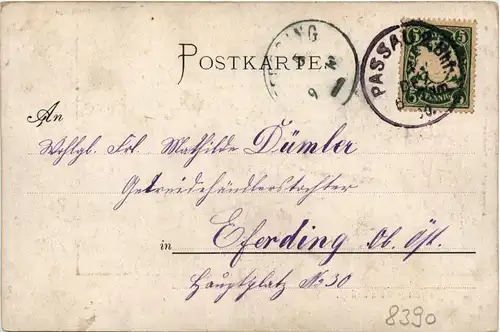 POSTKARTE
PASSAU
5 5
PFENNIG
An
Wohlgb. Frl. Mathilde Dümler
Getreidehändlerstochter
in Eferding Ob. Öst.
Hauptplatz No 30
8390